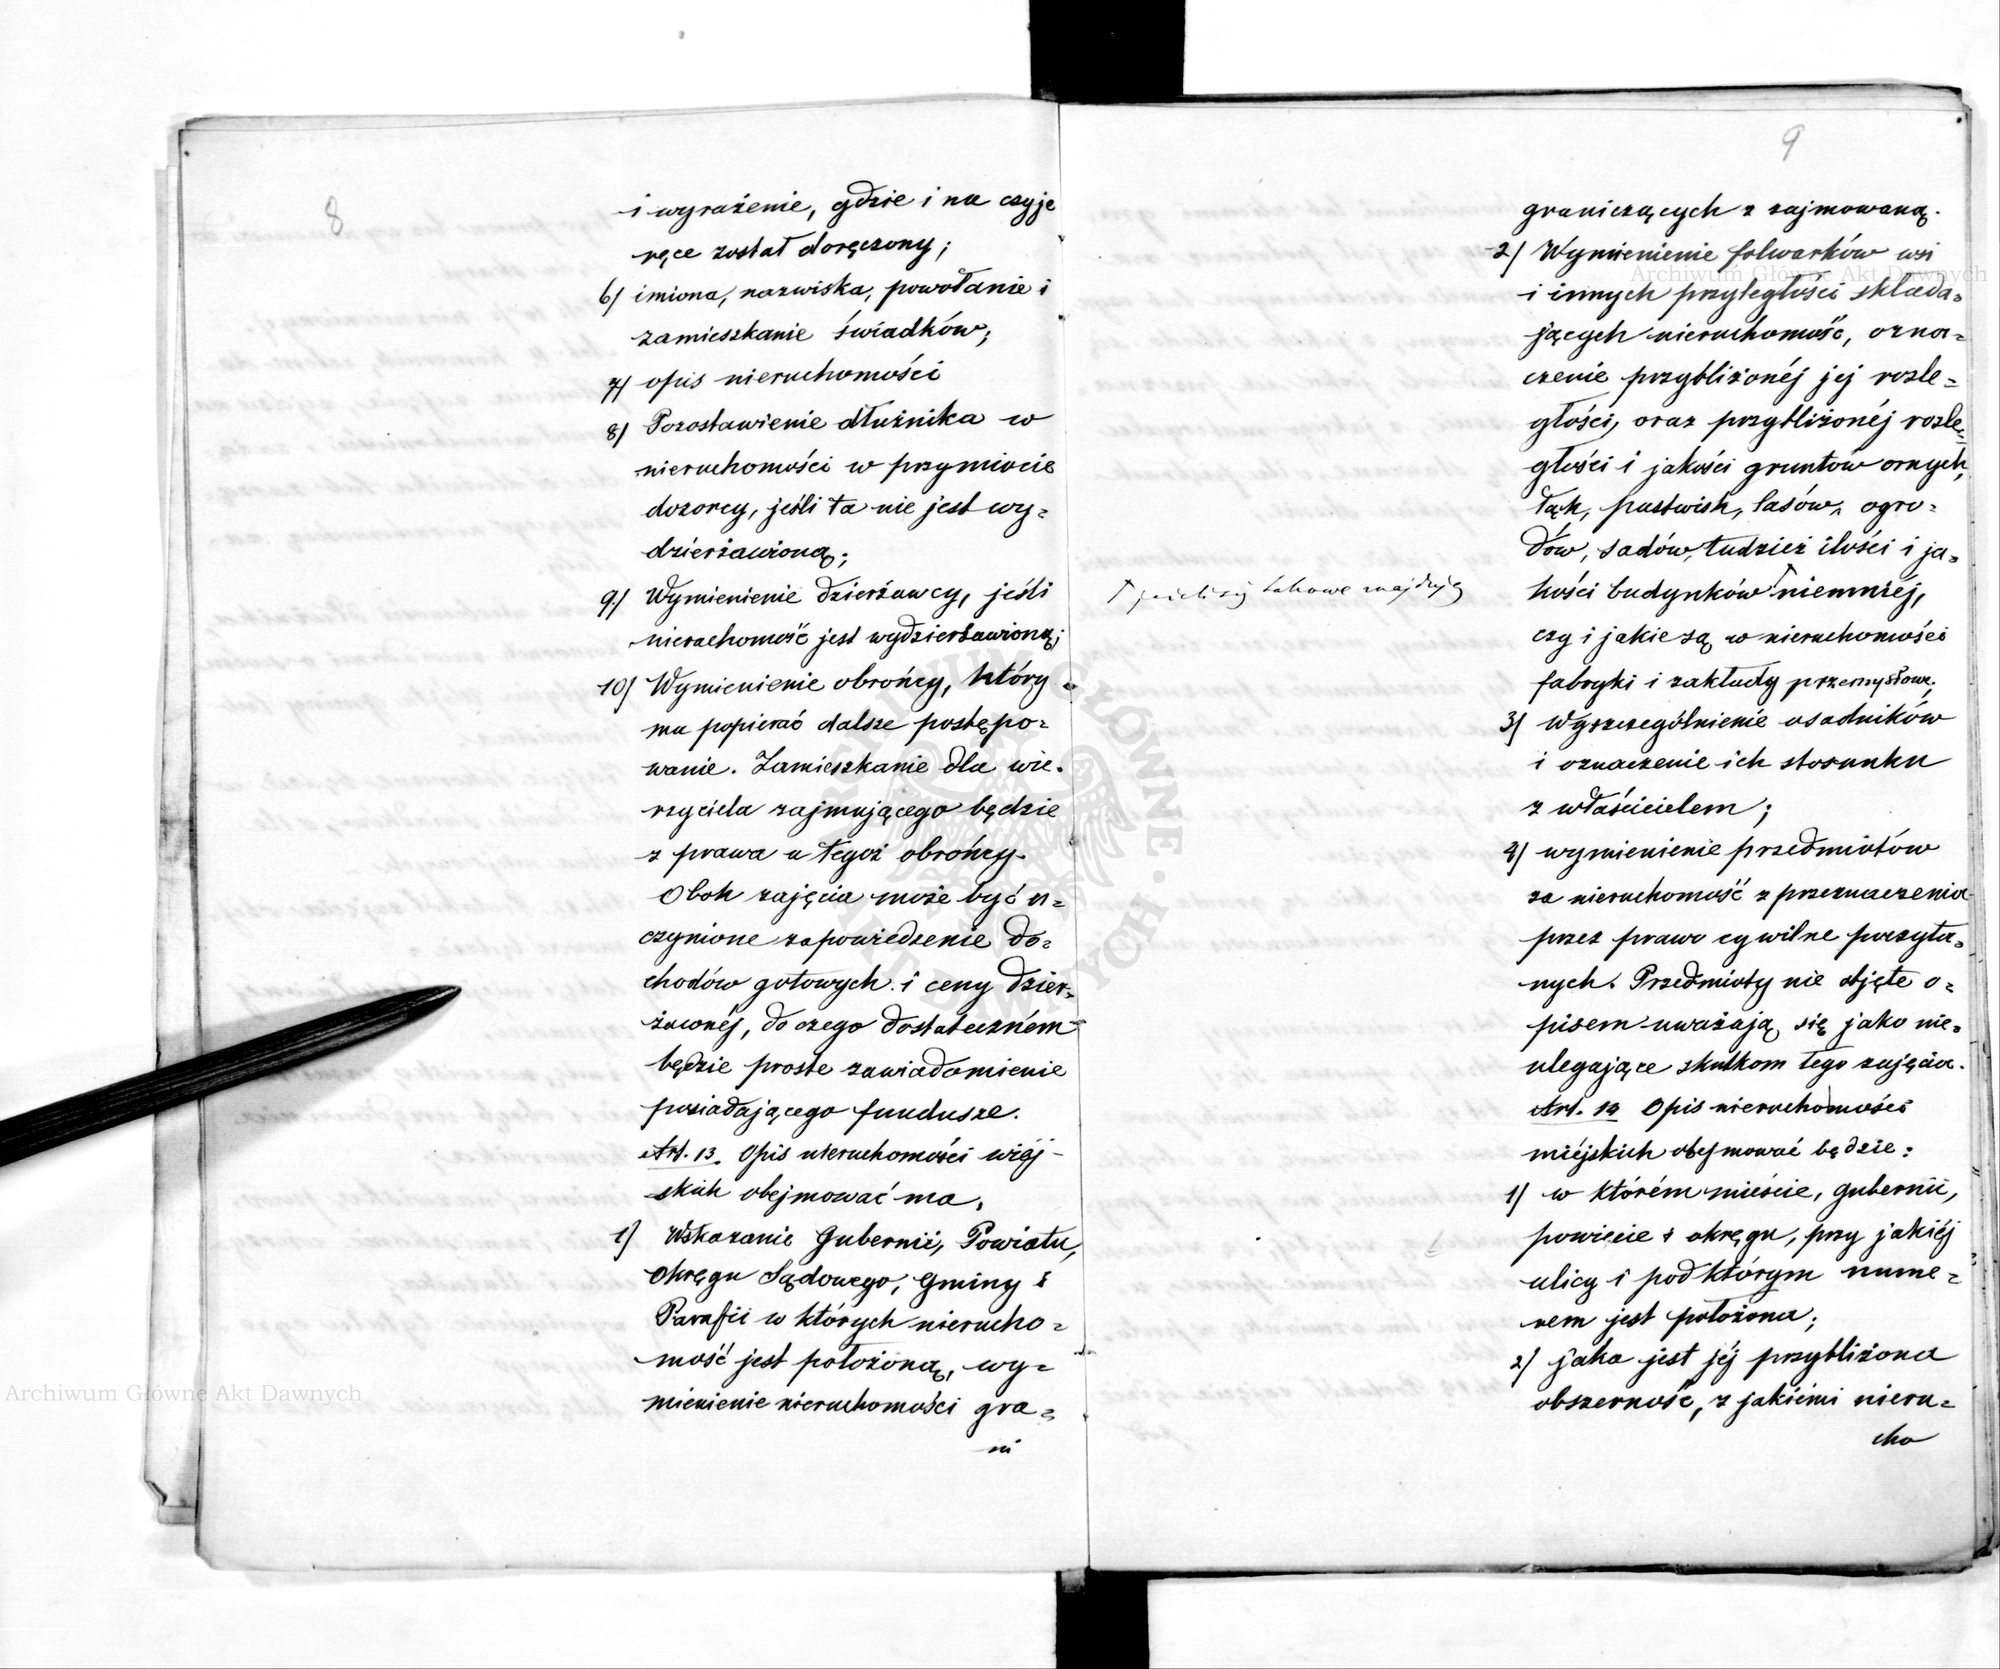 8
i wyrażenie, gdzie i na czyje
ręce został doręczony;
6) imiona, nazwiska, powołanie i
zamieszkanie świadków;
7) opis nieruchomości
8) Pozostawienie dłużnika w
nieruchomości w przymiocie
dozorcy, jeśli ta nie jest wy=
dzierżawioną;
9) Wymienienie dzierżawcy, jeśli
nieruchomość jest wydzierżawioną;
10) Wymienienie obrońcy, który
ma popierać dalsze postępo=
wanie. Zamieszkanie dla wie=
rzyciela zajmującego będzie
z prawa u tegoż obrońcy.
Obok zajęcia może być u=
czynione zapowiedzenie do=
chodów gotowych i ceny dzier=
żawnéj, do czego dostateczném
będzie proste zawiadomienie
posiadającego fundusze.
Art. 13. Opis nieruchomości wiej-
skich obejmować ma,
1) Wskazanie Gubernii, Powiatu,
Okręgu Sądowego, Gminy i
Parafii w których nierucho=
mość jest położoną, wy=
mienienie nieruchomości gra=
ni
9
graniczących z zajmowaną.
2) Wymienienie folwarków wsi
i innych przyległości składa=
jących nieruchomość, ozna=
czenie przybliżonéj jej rozle=
głości, oraz przybliżonéj rozle=
głości i jakości gruntów ornych,
łąk, pastwisk, lasów, ogro=
dów, sadów, tudzież ilości i ja=
kości budynków niemniéj,
jeżeli się takowe znajdują
czy i jakie są w nieruchomości
fabryki i zakłady przemysłowe;
3) Wyszczególnienie osadników
i oznaczenie ich stosunku
z właścicielem;
4) wymienienie przedmiotów
za nieruchomość z przeznaczenia
przez prawo cywilne poczyta=
nych. Przedmioty nie objęte o=
pisem uważają się jako nie=
ulegające skutkom tego zajęcia.
Art. 14 Opis nieruchomości
miéjskich obejmować będzie:
1) w którém mieście, gubernii,
powiecie i okręgu, przy jakiéj
ulicy i pod którym nume=
rem jest położona;
2) jaka jest jéj przybliżona
obszerność, z jakiémi nieru=
cho
Archiwum Główne Akt Dawnych
Archiwum Główne Akt Dawnych
ARCHIWUM GŁÓWNE AKT DAWNYCH